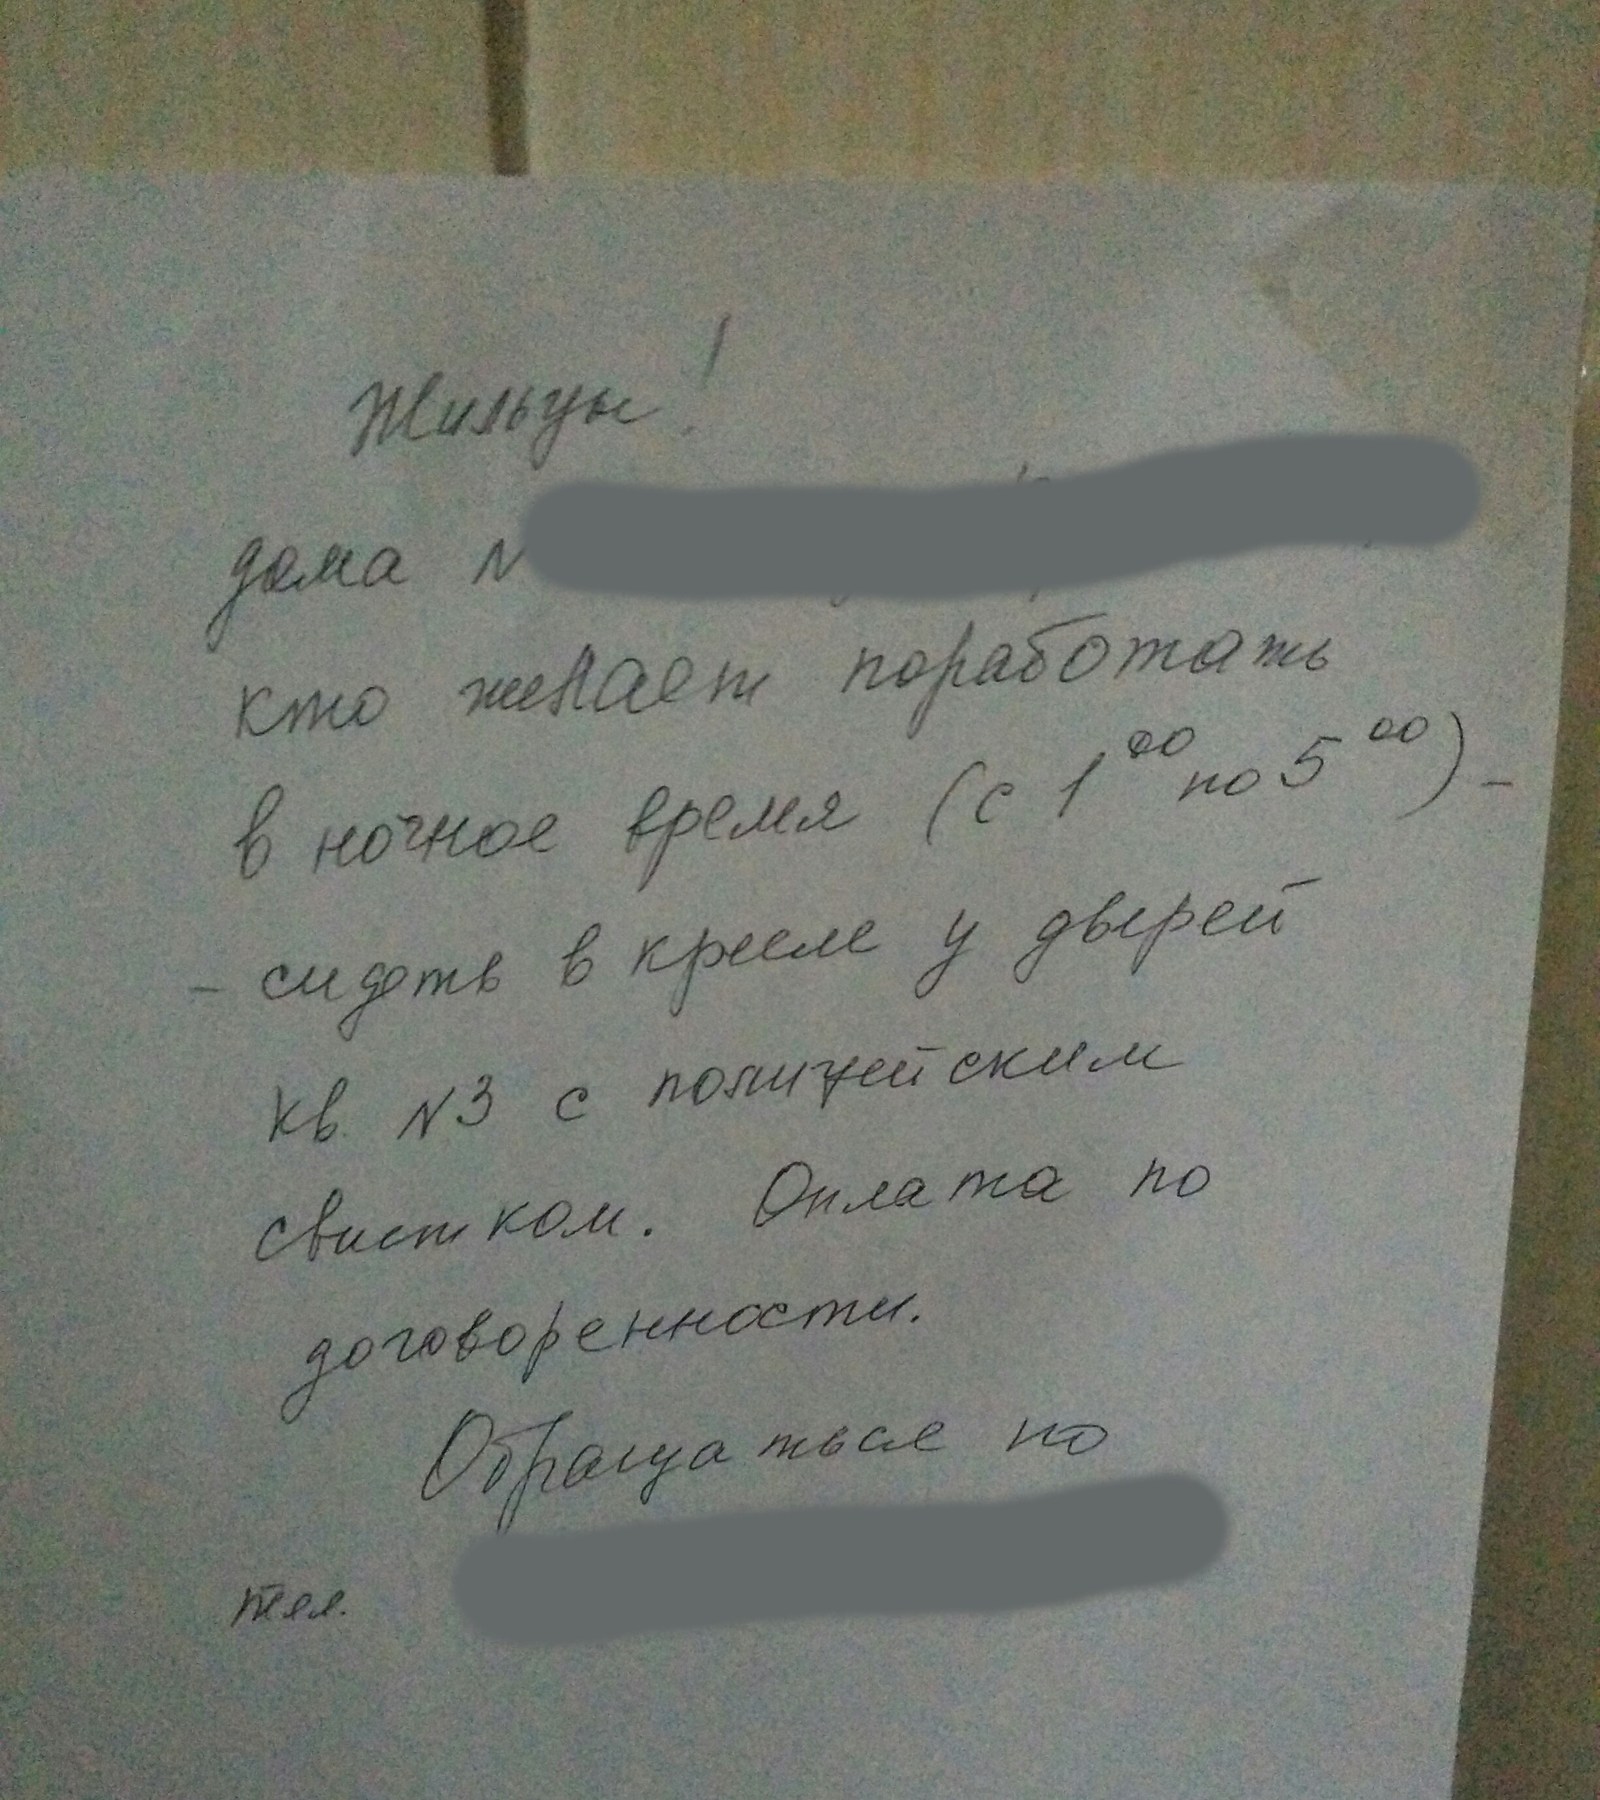 Жильцы!
дома N
кто желает поработать
в ночное время (с 1⁰⁰ по 5⁰⁰) –
– сидеть в кресле у дверей
кв. N3 с полицейским
свистком. Оплата по
договоренности.
Обращаться по
тел.